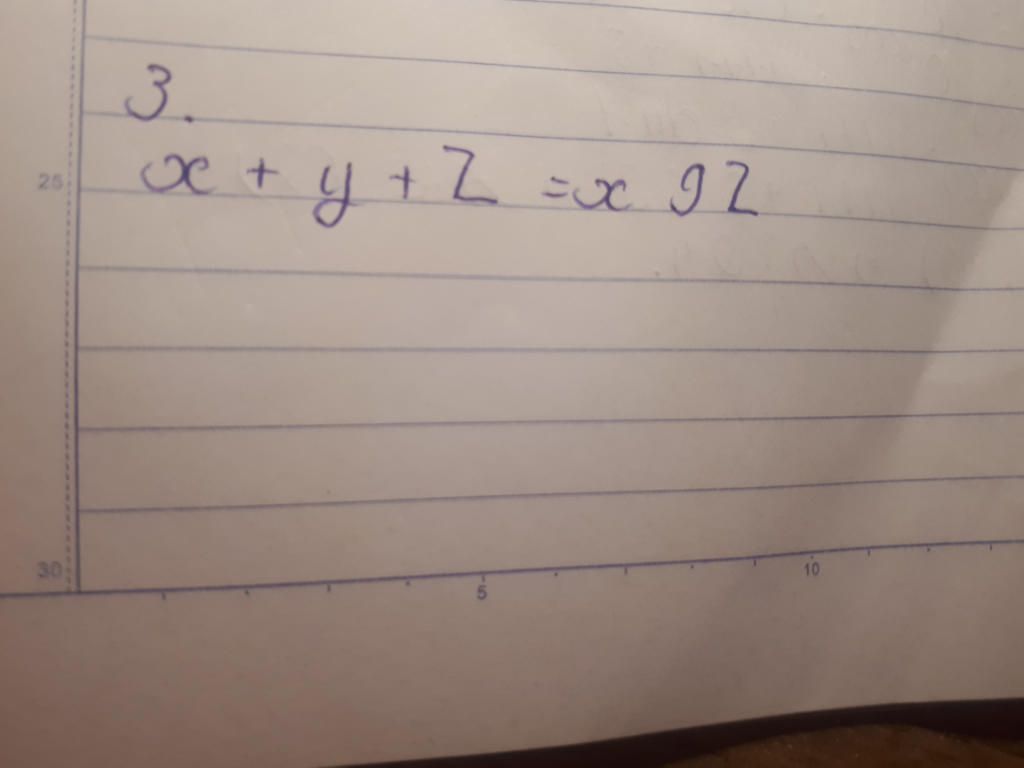 3.
x + y + z = x 9 z
25
30
5
10